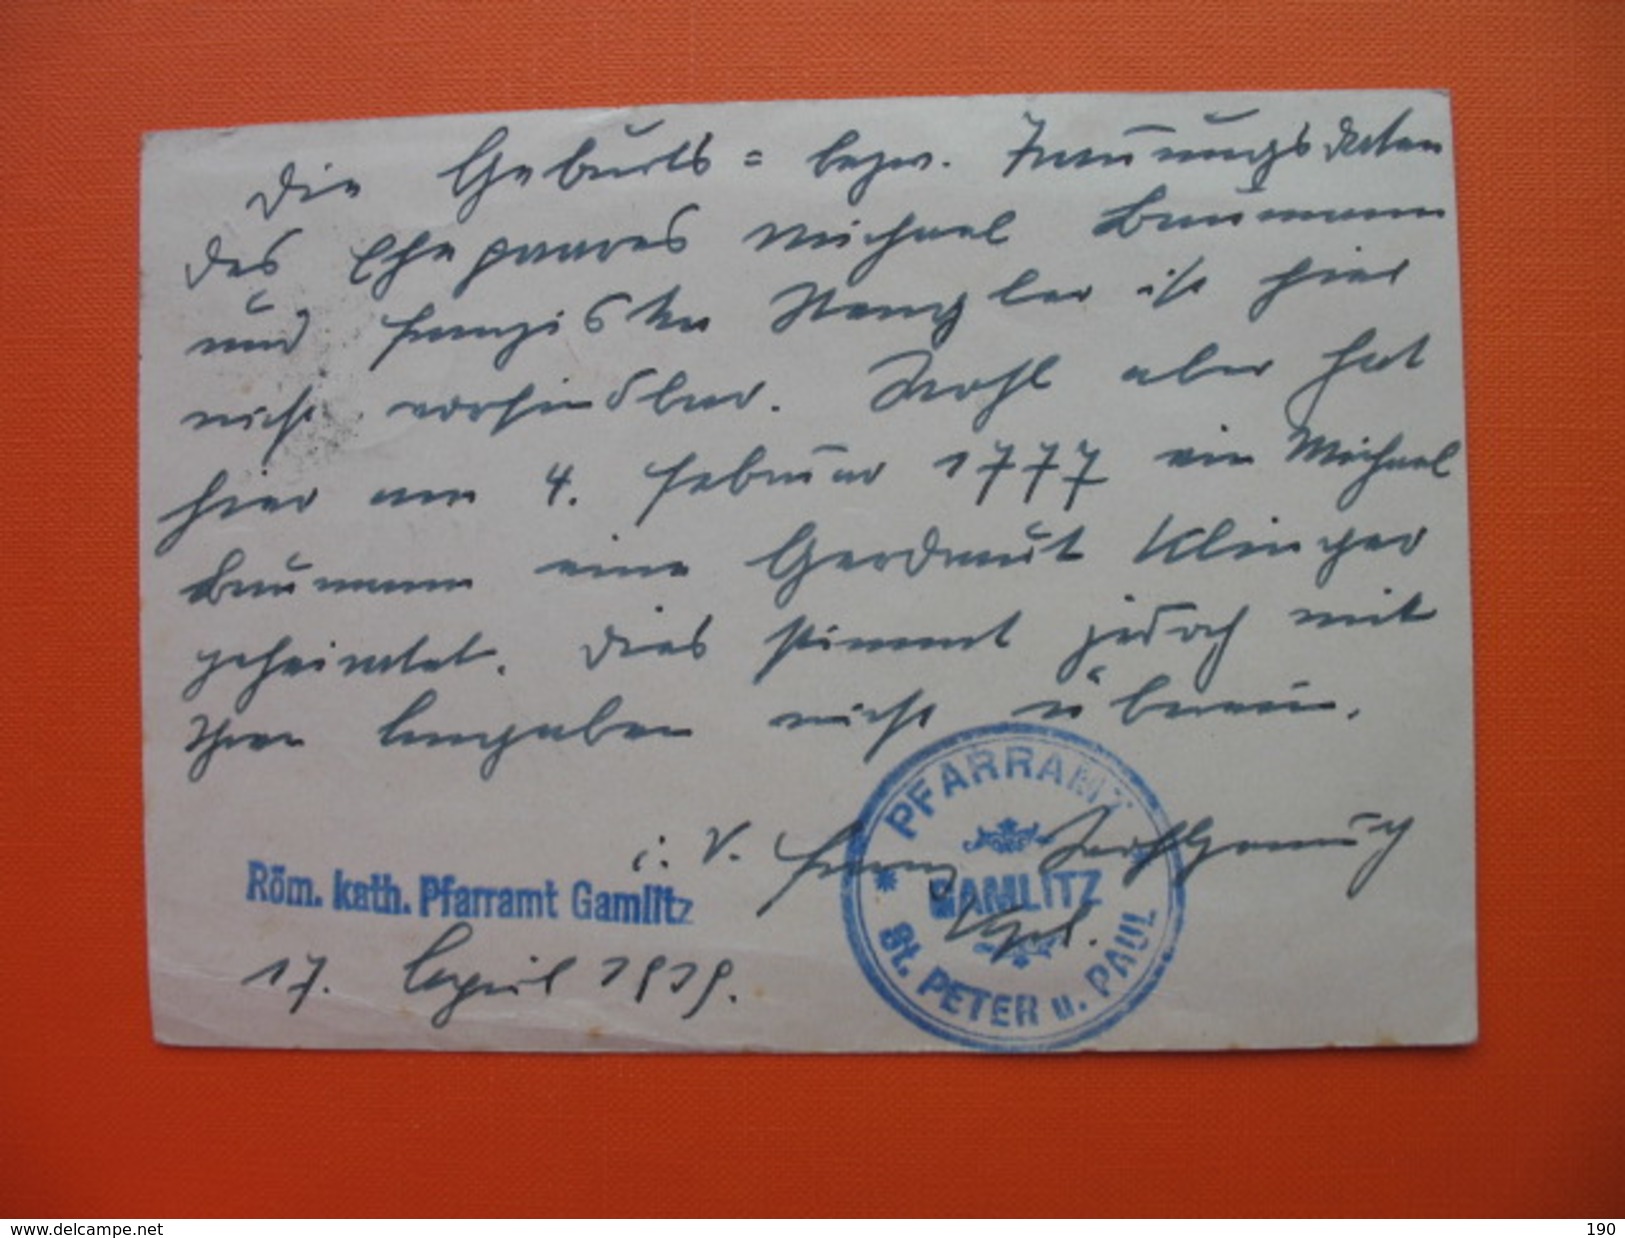 Die Geburts= bezw. Trauungsdaten
des Ehepaares Michael Baumann
und Franziska Stangler ist hier
nicht vorfindbar. Wohl aber hat
hier am 4. Februar 1777 ein Michael
Baumann eine Gerdraut Klinger
geheiratet. Dies stimmt jedoch mit
Ihren Angaben nicht überein.
i. V. Franz
Kpl.
Röm. kath. Pfarramt Gamlitz
17. April 1939.
PFARRAMT
GAMLITZ
St. PETER u. PAUL
www.delcampe.net
190